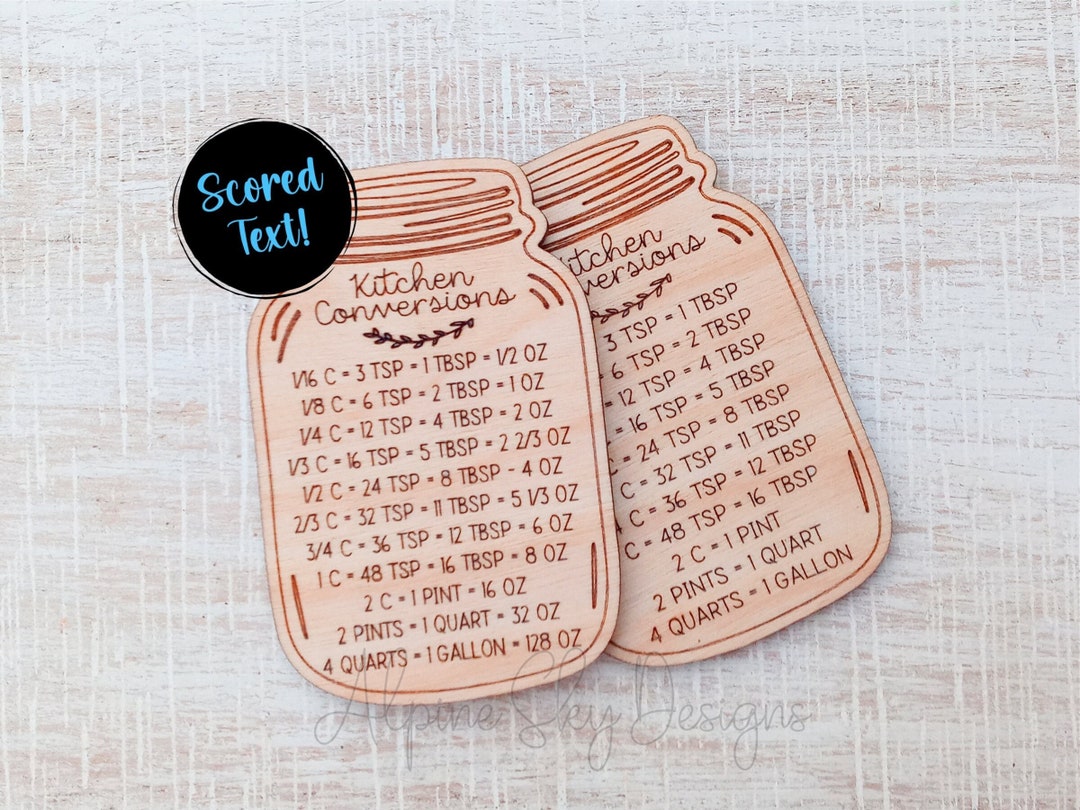 Scored
Text!
Kitchen
Conversions
1/16 C = 3 TSP = 1 TBSP = 1/2 OZ
1/8 C = 6 TSP = 2 TBSP = 1 OZ
1/4 C = 12 TSP = 4 TBSP = 2 OZ
1/3 C = 16 TSP = 5 TBSP = 2 2/3 OZ
1/2 C = 24 TSP = 8 TBSP - 4 OZ
2/3 C = 32 TSP = 11 TBSP = 5 1/3 OZ
3/4 C = 36 TSP = 12 TBSP = 6 OZ
1 C = 48 TSP = 16 TBSP = 8 OZ
2 C = 1 PINT = 16 OZ
2 PINTS = 1 QUART = 32 OZ
4 QUARTS = 1 GALLON = 128 OZ
3 TSP = 1 TBSP
= 6 TSP = 2 TBSP
= 12 TSP = 4 TBSP
= 16 TSP = 5 TBSP
C = 24 TSP = 8 TBSP
C = 32 TSP = 11 TBSP
C = 36 TSP = 12 TBSP
C = 48 TSP = 16 TBSP
2 C = 1 PINT
2 PINTS = 1 QUART
4 QUARTS = 1 GALLON
Alpine Sky Designs